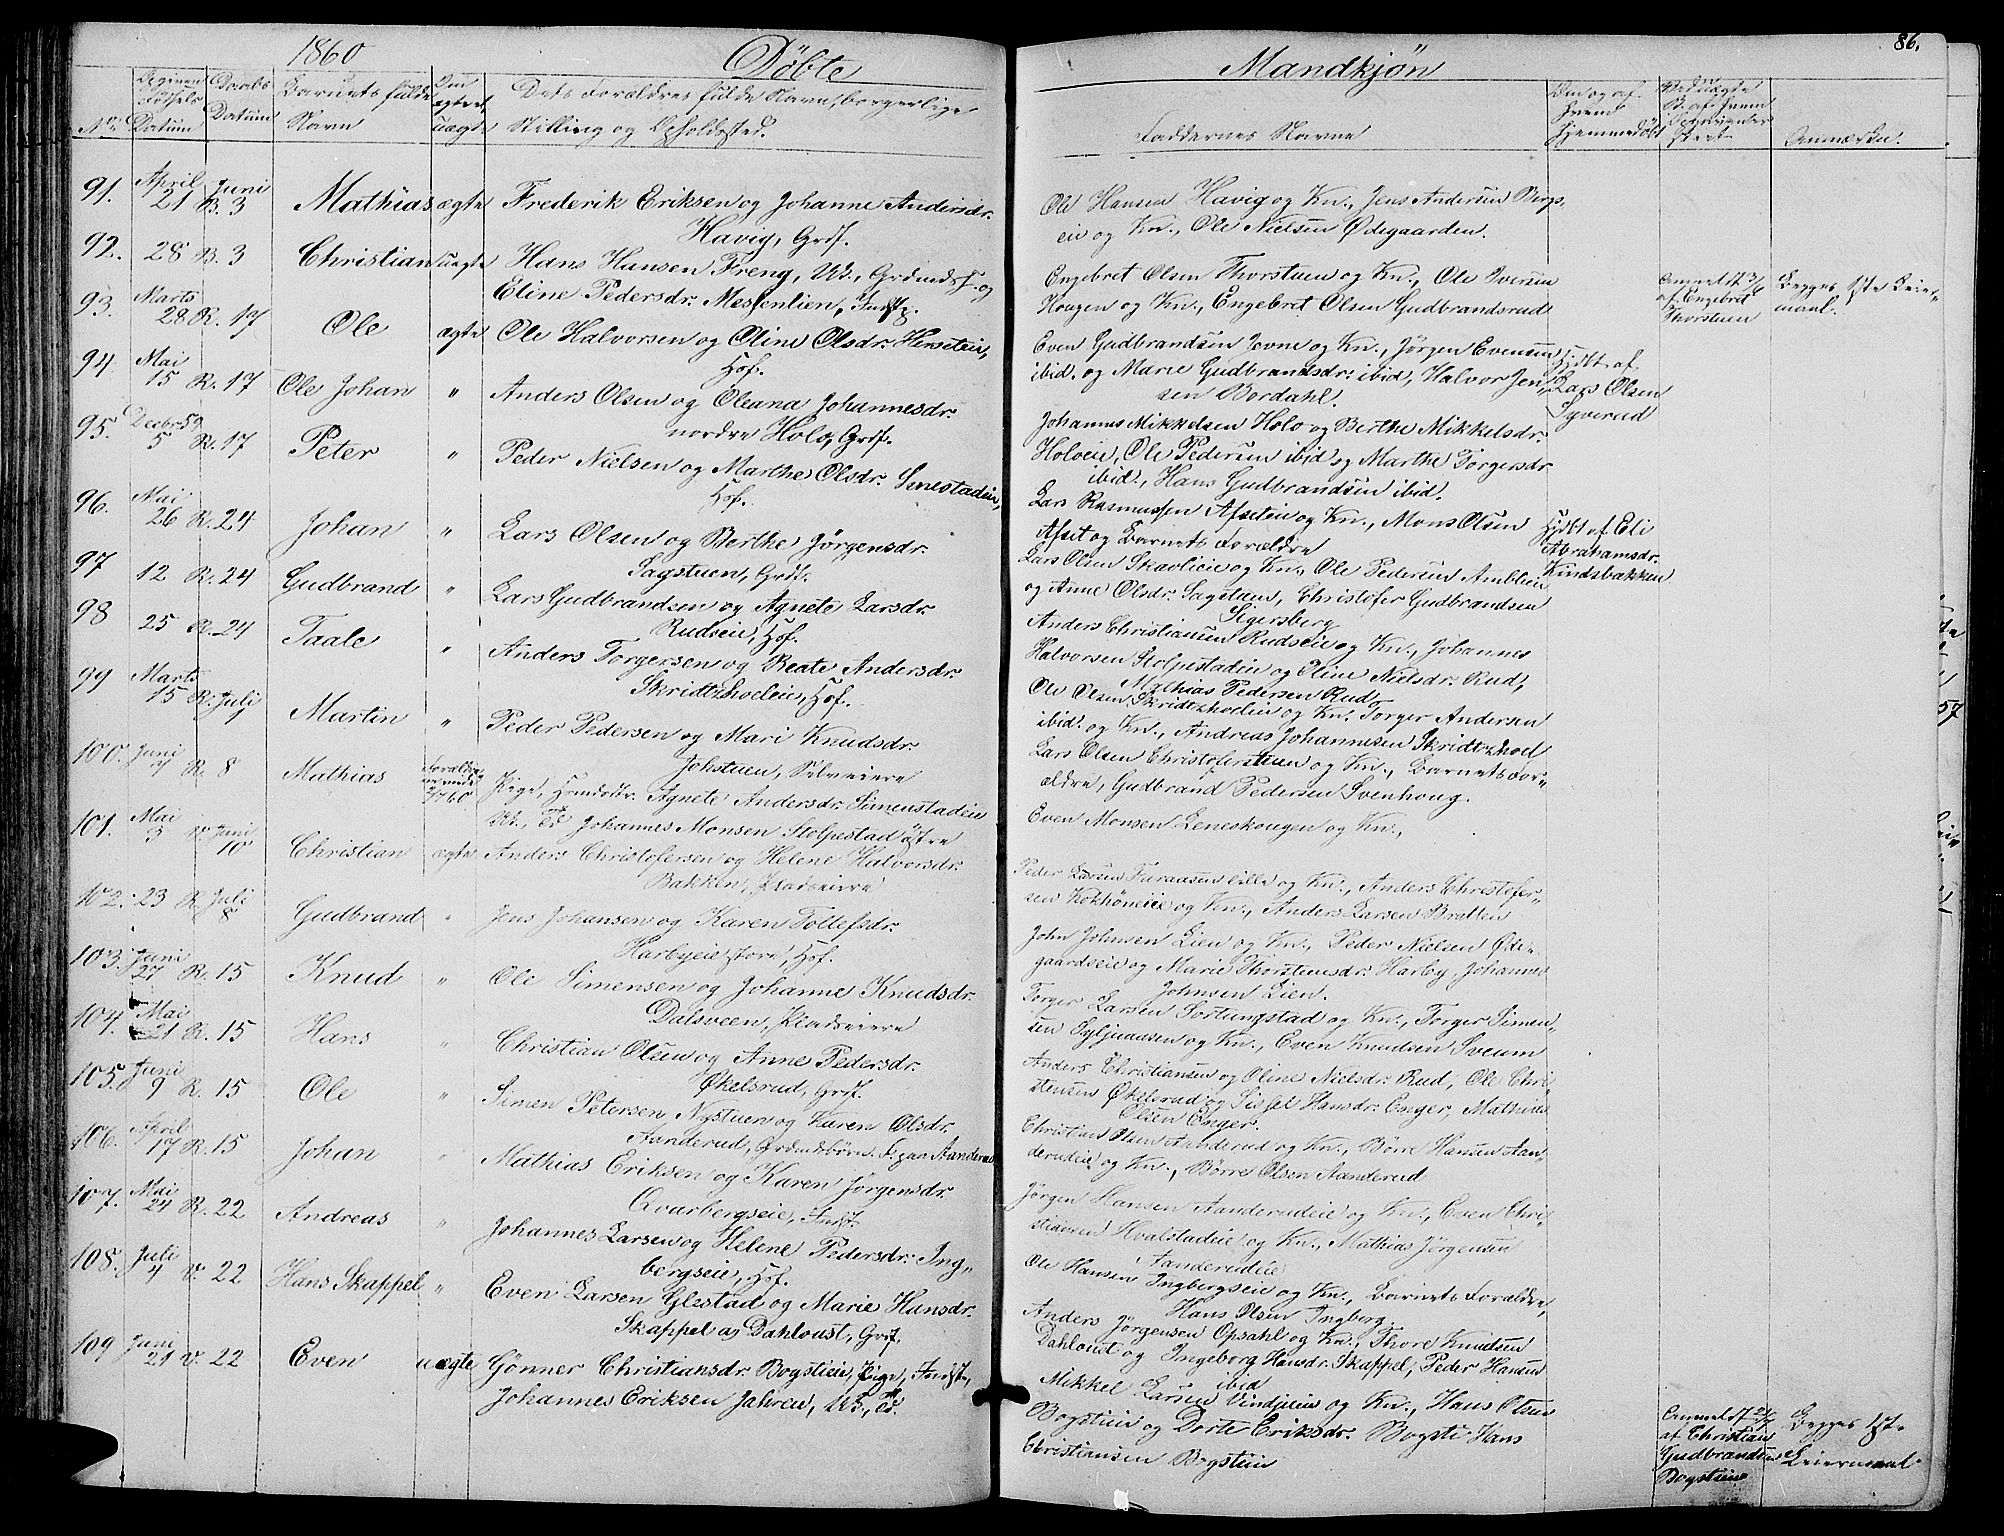 1860
Døbte
Mandkjøn
86.
No
Datum
Daabs
Datum
Barnets fulde
Navn
ægte
uægte
Dets Forældres fulde Navn, borgerlige
Stilling og Opholdssted.
Faddernes Navne
Om og af
hvem
hjemmedøbt
Anmærkn.
91. April 21 Juni B. 3 Mathias ægte Frederik Eriksen og Johanne Andersdr.
Havig, Grdf.
Ole Hansen Havig og Kn., Jens Andersen Bergs-
eie og Kn., Ole Nielsen Ødegaarden.
92. 28 B. 3 Christian uægte Hans Hansen Freng, U., Grdmdsf. og
Eline Pedersdr. Meslenlien, Indst.
Engebret Olsen Thorstuen og Kn., Ole Iversen
Hougen og Kn., Engebret Olsen Gudbrandsrud
Anmeldt 3/6
af Engebret
Thorstuen
Begges 1ste Leier-
maal.
93. Marts 28 R. 17 Ole ægte Ole Halvorsen og Oline Olsdr. Hersteie,
Hof.
Even Gudbrandsen Jevne og Kn., Jørgen Evensen
ibid. og Marie Gudbrandsdr. ibid, Halvor Jen-
sen Bordahl.
Hjdt. af
Lars Olsen
Syverud
94. Mai 15 R. 17 Ole Johan " Anders Olsen og Oleana Johannesdr.
nordre Holo, Grdf.
Johannes Mikkelsen Holo og Berthe Mikkelsdr.
Holoeie, Ole Pedersen ibid og Marthe Torgersdr.
ibid., Hans Gudbrandsen ibid.
95. Decbr 59 5 R. 17 Peter " Peder Nielsen og Marthe Olsdr. Smestadeie,
Hof.
Lars Rasmussen Afseteie og Kn., Mons Olsen
Afset og Barnets Forældre
Hjdbt af Eli
Abrahamsdr.
Kindsbækken
96. Mai 26 R. 24 Johan " Lars Olsen og Berthe Jørgensdr.
Sagstuen, Grdf.
Lars Olsen Skavlieie og Kn., Ole Pedersen Amblien
og Anne Olsdr. Sagstuen, Christofer Gudbrandsen
Sigersberg
97 12 R. 24 Gudbrand " Lars Gudbrandsen og Agnete Larsdr.
Rudseie, Hof.
Anders Christiansen Rudseie og Kn., Johannes
Halvorsen Stolpestadeie og Eline Nielsdr. Rud,
Mathias Pedersen Rud
98 25 R. 24 Taale " Anders Torgersen og Beate Andersdr.
Skridtshoeleie, Hof.
Ole Olsen Skridtshoeleie og Kn. Torger Andersen
ibid. og Kn., Andreas Johannesen Skridtshoel
99 Marts 15 R. Juli 1 Martin " Peder Pedersen og Mari Knudsdr.
Johstuen, Selveiere
Lars Olsen Christoferstuen og Kn., Barnets For-
ældre, Gudbrand Pedersen Svenhoug.
100. Juni 7 R. 8 Mathias Pige, Agnete Andersdr. Simenstadeie
Johannes Monsen Stolpestad østre
Even Monsen Leneskougen og Kn.,
101. Mai 3 Juni 10 Christian ægte Anders Christofersen og Helene Halvorsdr.
Bakken, Pladseiere
Peder Larsen Furaasen lille og Kn., Anders Christofer-
sen Kokhøneie og Kn., Anders Larsen Bratlien
102. 23 R. Juli 8 Gudbrand " Jens Johansen og Karen Tollefsdr.
Harbyeie store, Hof.
John Johnsen Lien og Kn., Peder Nielsen Øde-
gaardseie og Marie Thorstensdr. Harby, Johannes
Johnsen Lien.
103. Juni 27 R. 15 Knud " Ole Simensen og Johanne Knudsdr.
Dalsveen, Pladseiere
Torger Larsen Sortungstad og Kn., Torger Simen-
sen Syljuaasen og Kn., Even Knudsen Sveum
104. Mai 21 R. 15 Hans " Christian Olsen og Anne Pedersdr.
Økelsrud, Grdf.
Anders Christiansen og Oline Nielsdr. Rud, Ole Chri-
stensen Økelsrud og Sissel Hansdr. Enger, Mathias
Olsen Enger.
105. Juni 9 R. 15 Ole " Simen Petersen Nystuen og Karen Olsdr.
Aanderud, Grdmdsbørn F. paa Aanderud
Christian Olsen Aanderud og Kn., Børre Hansen Aan-
derudeie og Kn., Børre Olsen Aanderud
106. April 17 R. 15 Johan " Mathias Eriksen og Karen Jørgensdr.
Qvarbergseie, Indst.
Jørgen Hansen Aanderudeie og Kn., Even Chri-
stiansen Hvalstadeie og Kn., Mathias Jørgensen
Aanderudeie
107. Mai 24 R. 22 Andreas " Johannes Larsen og Helene Pedersdr. Ing-
bergseie, Hof.
Ole Hansen Ingbergseie og Kn., Barnets Forældre,
Hans Olsen Ingberg.
108. Juli 4 V. 22 Hans Skappel " Even Larsen Glestad og Marie Hansdr.
Skappel a/ Dahloust, Grdf.
Anders Jørgensen Opsahl og Kn., Thore Knudsen
Dahloust og Ingeborg Hansdr. Skappel, Peder Hansen
ibid
109 Juni 21 V. 22 Even uægte Gønner Christiansdr. Bogstieie, Pige, Indst.,
Johannes Eriksen Jahren, U., Td.
Mikkel Larsen Vindjueie og Kn., Hans Olsen
Bogstieie og Dorte Eriksdr. Bogsti Hans
Christiansen Bogstieie
Anmeldt
af Christian
Gudbrandsen
Bogstieie
Begges 1ste
Leiermaal.